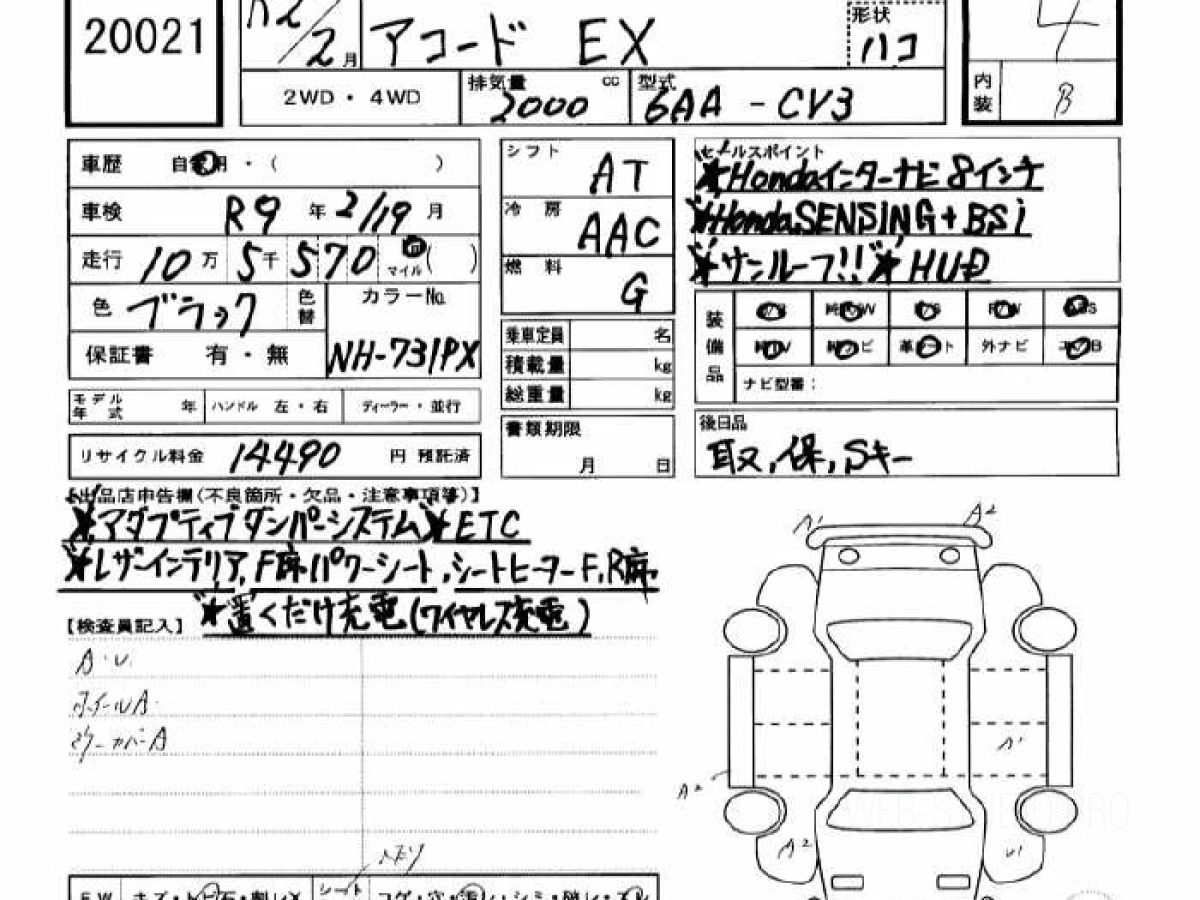 20021
R2/2月 アコード EX 形状 ハコ
4
2WD・4WD 排気量 2000 cc 型式 6AA-CV3
内装 B
車歴 自家用・( )
車検 R9年2/19月
走行 10万5千570 マイル( )
色 ブラック 色替 カラーNo. NH-731PX
保証書 有・無
モデル年式 年 ハンドル 左・右 ディーラー・並行
リサイクル料金 14490 円 預託済
シフト AT
冷房 AAC
燃料 G
乗車定員 名
積載量 kg
総重量 kg
書類期限
月 日
セールスポイント
★Hondaインターナビ8インチ
★HondaSENSING+BSi
★サンルーフ!!★HUD
装備品
外ナビ
ナビ型番:
後日品
取,保,Sキー
【出品店申告欄(不良箇所・欠品・注意事項等)】
★アダプティブダンパーシステム★ETC
★レザーインテリア,F席パワーシート,シートヒーターF,R席
★置くだけ充電(ワイヤレス充電)
【検査員記入】
A・U.
ホイールA
ミラーカバーA
A1
A2
A1
A2
A2
U1
FW キズ・トビ石・刺レX シート コゲ・穴・汚レ・シミ・破レ・スレ